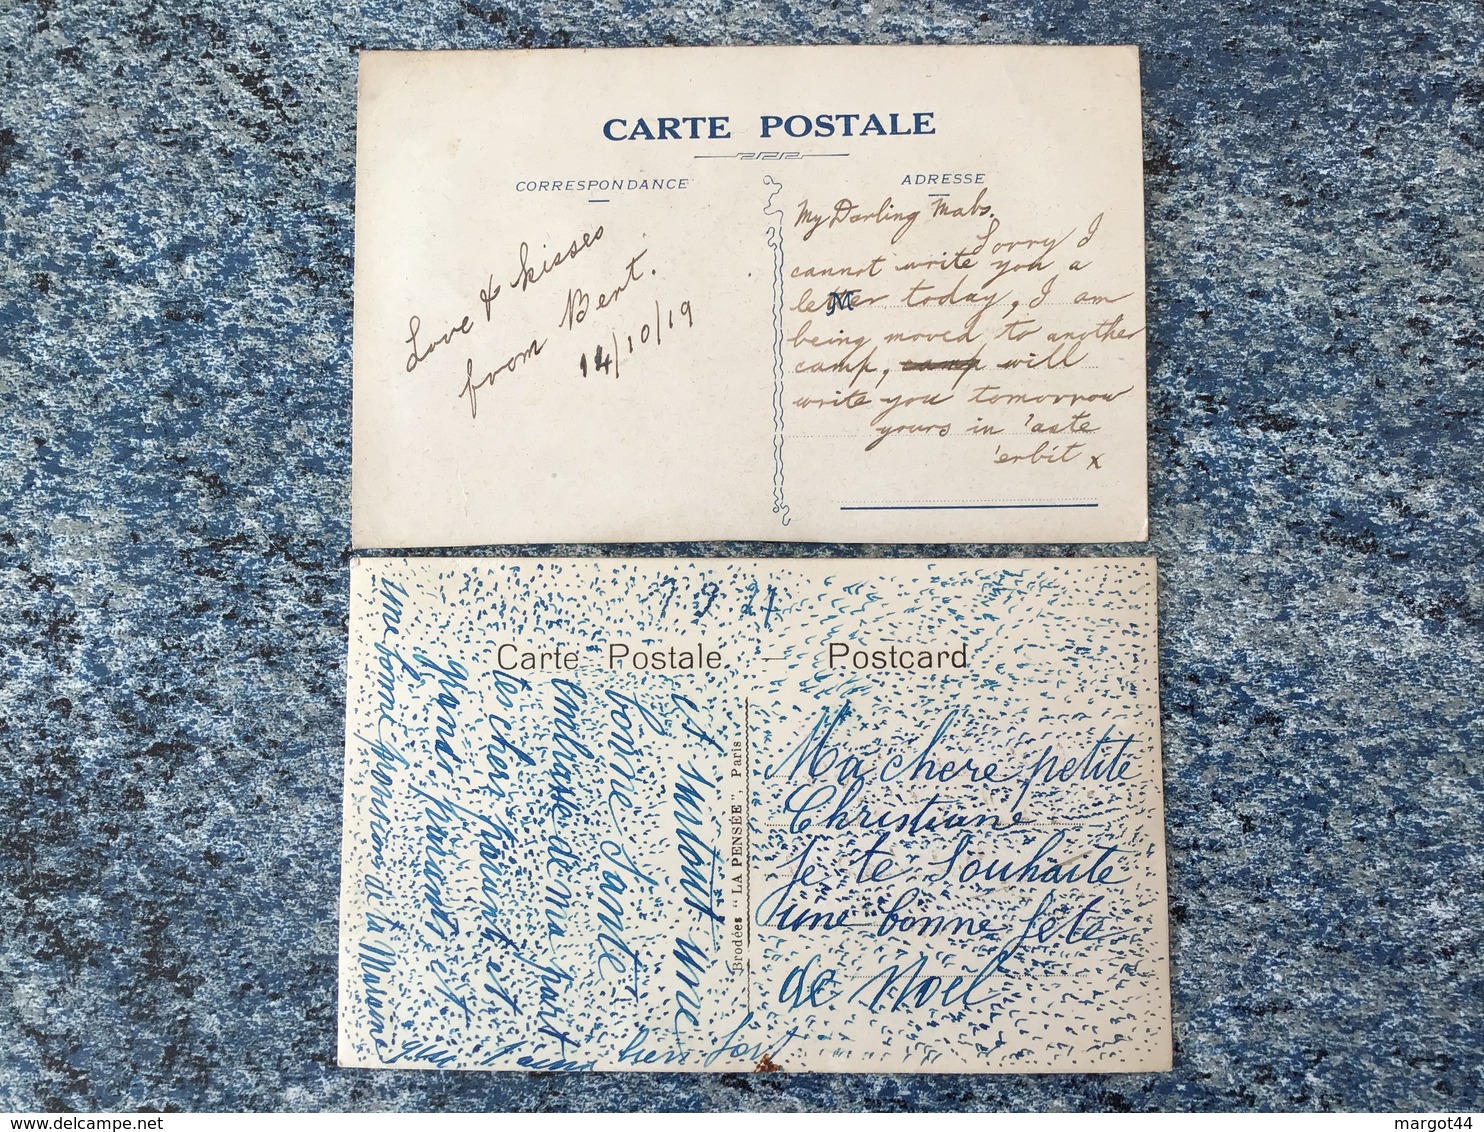 CARTE POSTALE
CORRESPONDANCE
ADRESSE
Love & kisses
from Bert.
14/10/19
My Darling Mabs.
Sorry I
cannot write you a
letter today, I am
being moved to another
camp, camp will
write you tomorrow
yours in 'aste
'erbit x
Carte Postale — Postcard
Brodées "LA PENSÉE", Paris
Ma chere petite
Christiane
Je te souhaite
une bonne fete
de Noël
et surtout une
bonne Santé
embrasse de ma part
tes chers parent et
grand parents et
une bonne de la
bien fort
delcampe.net
margot44